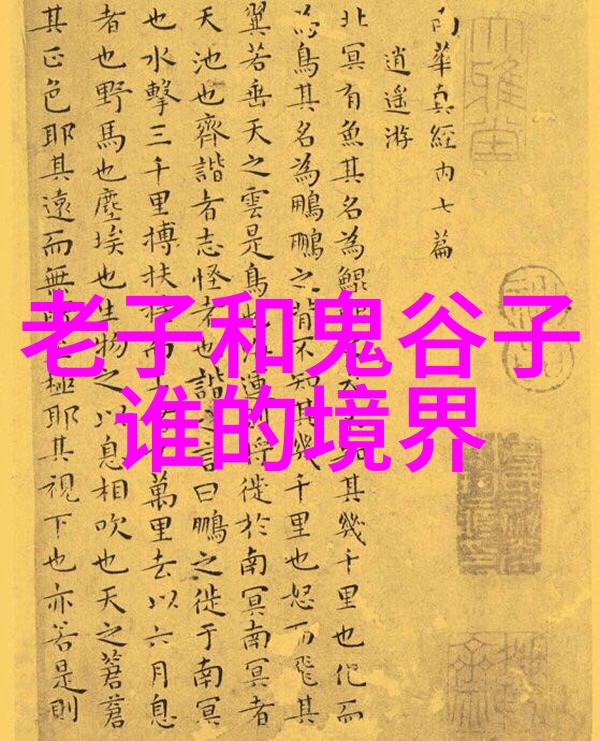 老子和鬼谷子
谁的境界
南華真經内七篇
逍遙游
北冥有魚其名為鯤其幾千里也化而
為鳥其名為鵬鵬之背不知其幾千里也怒而飛其
翼若垂天之雲是鳥也運則將徙於南冥南冥者
天池也齊諧者志怪者也諧之言曰鵬之徙于南冥
也水擊三千里搏扶搖而上萬里去以六月息
者也野馬也塵埃也生物之以息相吹也天之蒼蒼
其正色耶其遠而無極耶其視下也亦若是則